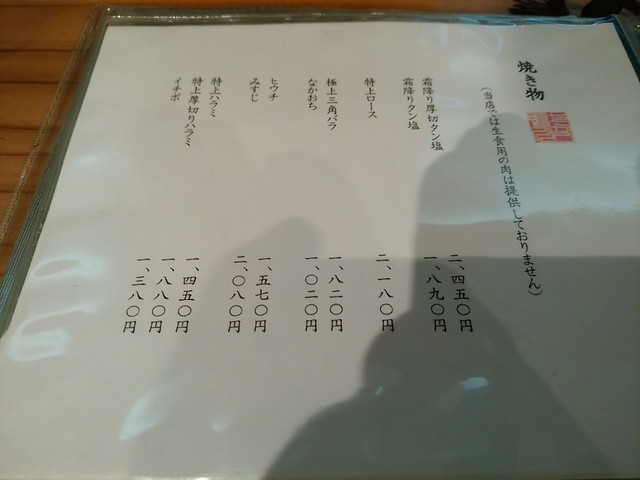 焼き物
(当店では生食用の肉は提供しておりません)
霜降り厚切タン塩 二、四五〇円
霜降りタン塩 一、八九〇円
特上ロース 二、一八〇円
極上三角バラ 一、八二〇円
なかおち 一、〇二〇円
ヒウチ 一、五七〇円
みすじ 二、〇八〇円
特上ハラミ 一、四五〇円
特上厚切りハラミ 一、八八〇円
イチボ 一、三八〇円